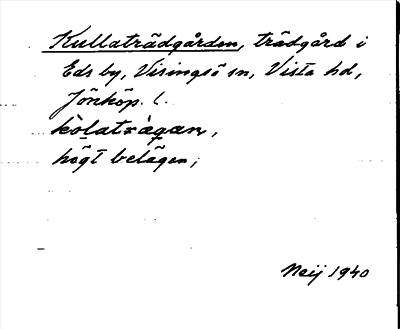 Kullaträdgården, trädgård i
Eds by, Visingsö sn, Vista hd,
Jönköp. l.
kòlatràgan,
högt belägen;
Neij 1940